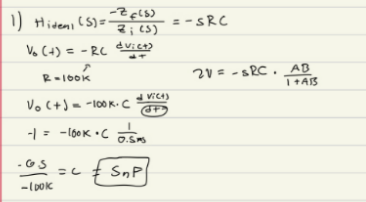 1) H ideal (s) = -Z_f(s) / Z_i(s) = -sRC
V_o (t) = -RC dv_i(t)/dt
R = 100K
2V = -sRC · AB / 1+AB
V_o (t) = -100K · C dv_i(t)/dt
-1 = -100K · C 1/0.5ms
/-100K = C = 5nP